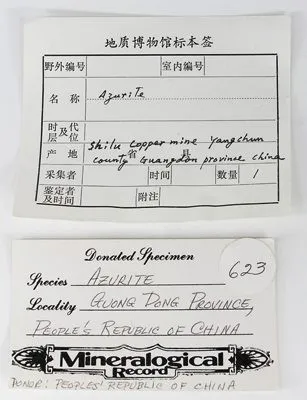 地质博物馆标本签
野外编号 室内编号
名称 Azurite
时及代
层 位
Shilu copper mine Yangchun
产地 省 县
county Guangdon province china
采集者 时间 数量 1
鉴定者
及时间 附注
Donated Specimen
623
Species AZURITE
Locality GUONG DONG PROVINCE,
PEOPLE'S REPUBLIC OF CHINA
Mineralogical
Record
DONOR: PEOPLES' REPUBLIC OF CHINA